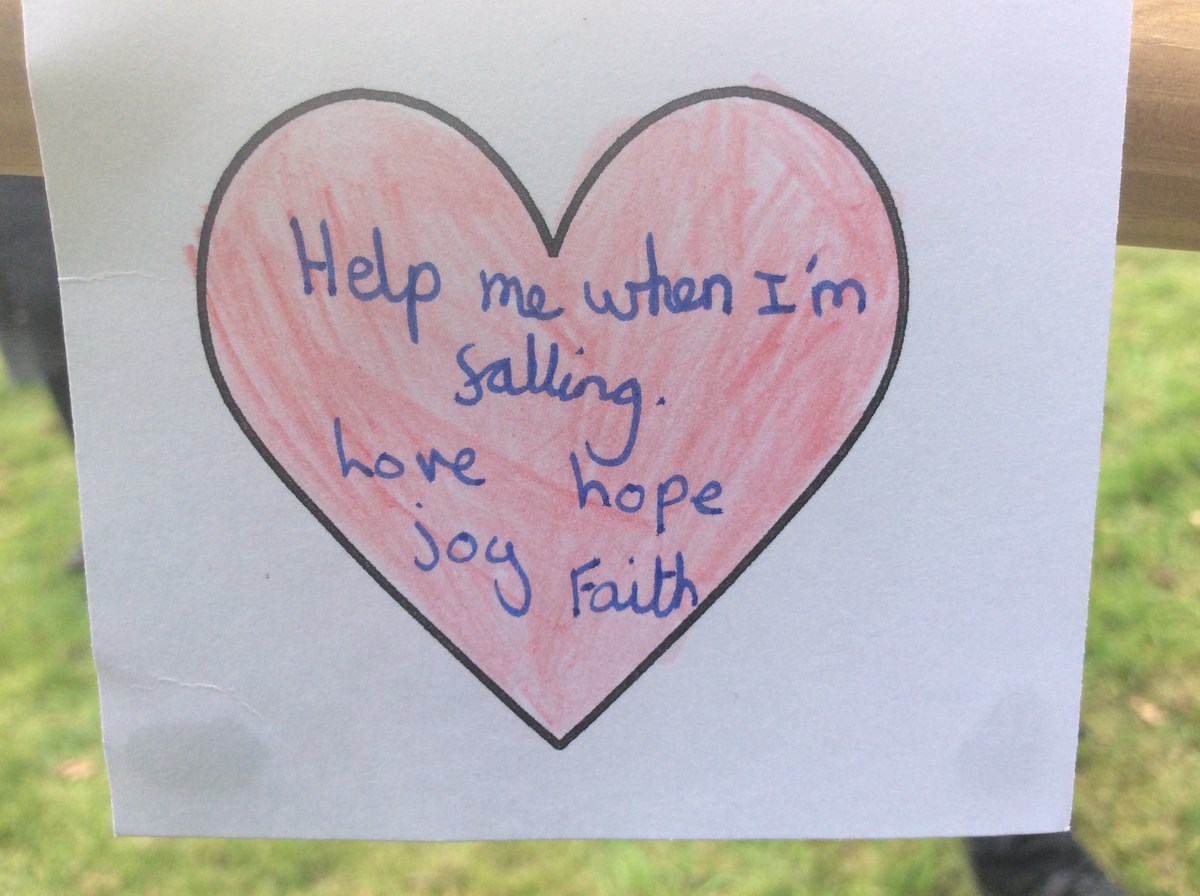 Help me when I'm
falling.
Love hope
joy Faith